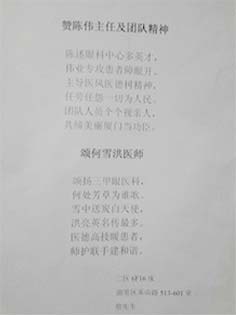 赞陈伟主任及团队精神
陈述眼科中心多英才，
伟业专攻患者障眼开。
主导医风医德树精神，
任劳任怨一切为人民。
团队人员个个视亲人，
共缔美丽厦门当功臣。
颂何雪洪医师
颂扬三甲眼医科，
何处芳草为谁歌。
雪中送炭白天使，
洪亮英名传最多。
医德高技暖患者，
师护联手建和谐。
二区 6F16床
湖里区 513-601室